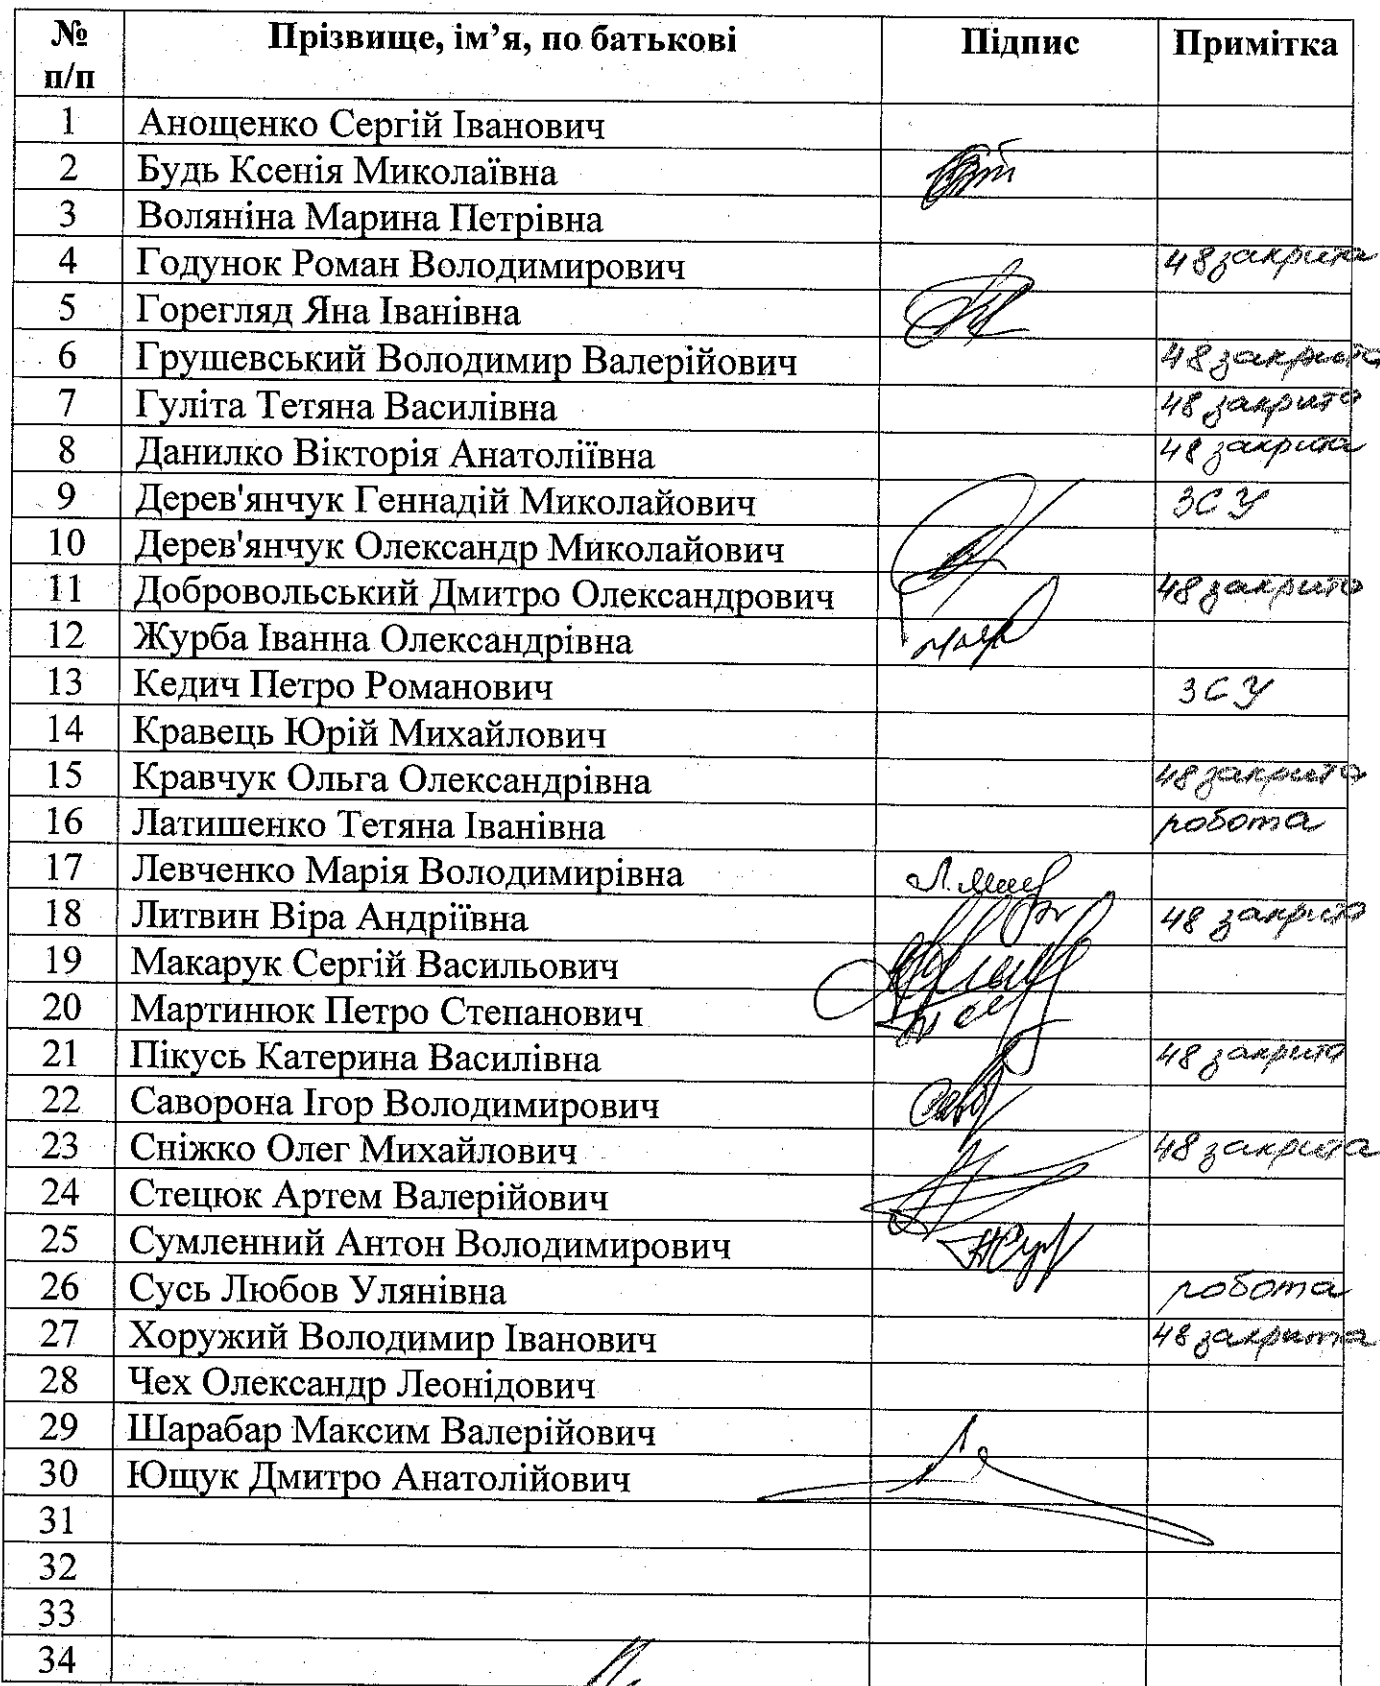 № п/п Прізвище, ім’я, по батькові Підпис Примітка
1 Анощенко Сергій Іванович
2 Будь Ксенія Миколаївна
3 Воляніна Марина Петрівна
4 Годунок Роман Володимирович 48 закрита
5 Горегляд Яна Іванівна
6 Грушевський Володимир Валерійович 48 закрита
7 Гуліта Тетяна Василівна 48 закрита
8 Данилко Вікторія Анатоліївна 48 закрита
9 Дерев'янчук Геннадій Миколайович ЗСУ
10 Дерев'янчук Олександр Миколайович
11 Добровольський Дмитро Олександрович 48 закрита
12 Журба Іванна Олександрівна
13 Кедич Петро Романович ЗСУ
14 Кравець Юрій Михайлович
15 Кравчук Ольга Олександрівна 48 закрита
16 Латишенко Тетяна Іванівна робота
17 Левченко Марія Володимирівна
18 Литвин Віра Андріївна 48 закрита
19 Макарук Сергій Васильович
20 Мартинюк Петро Степанович
21 Пікусь Катерина Василівна 48 закрита
22 Саворона Ігор Володимирович
23 Сніжко Олег Михайлович 48 закрита
24 Стецюк Артем Валерійович
25 Сумленний Антон Володимирович
26 Сусь Любов Улянівна робота
27 Хоружий Володимир Іванович 48 закрита
28 Чех Олександр Леонідович
29 Шарабар Максим Валерійович
30 Ющук Дмитро Анатолійович
31
32
33
34